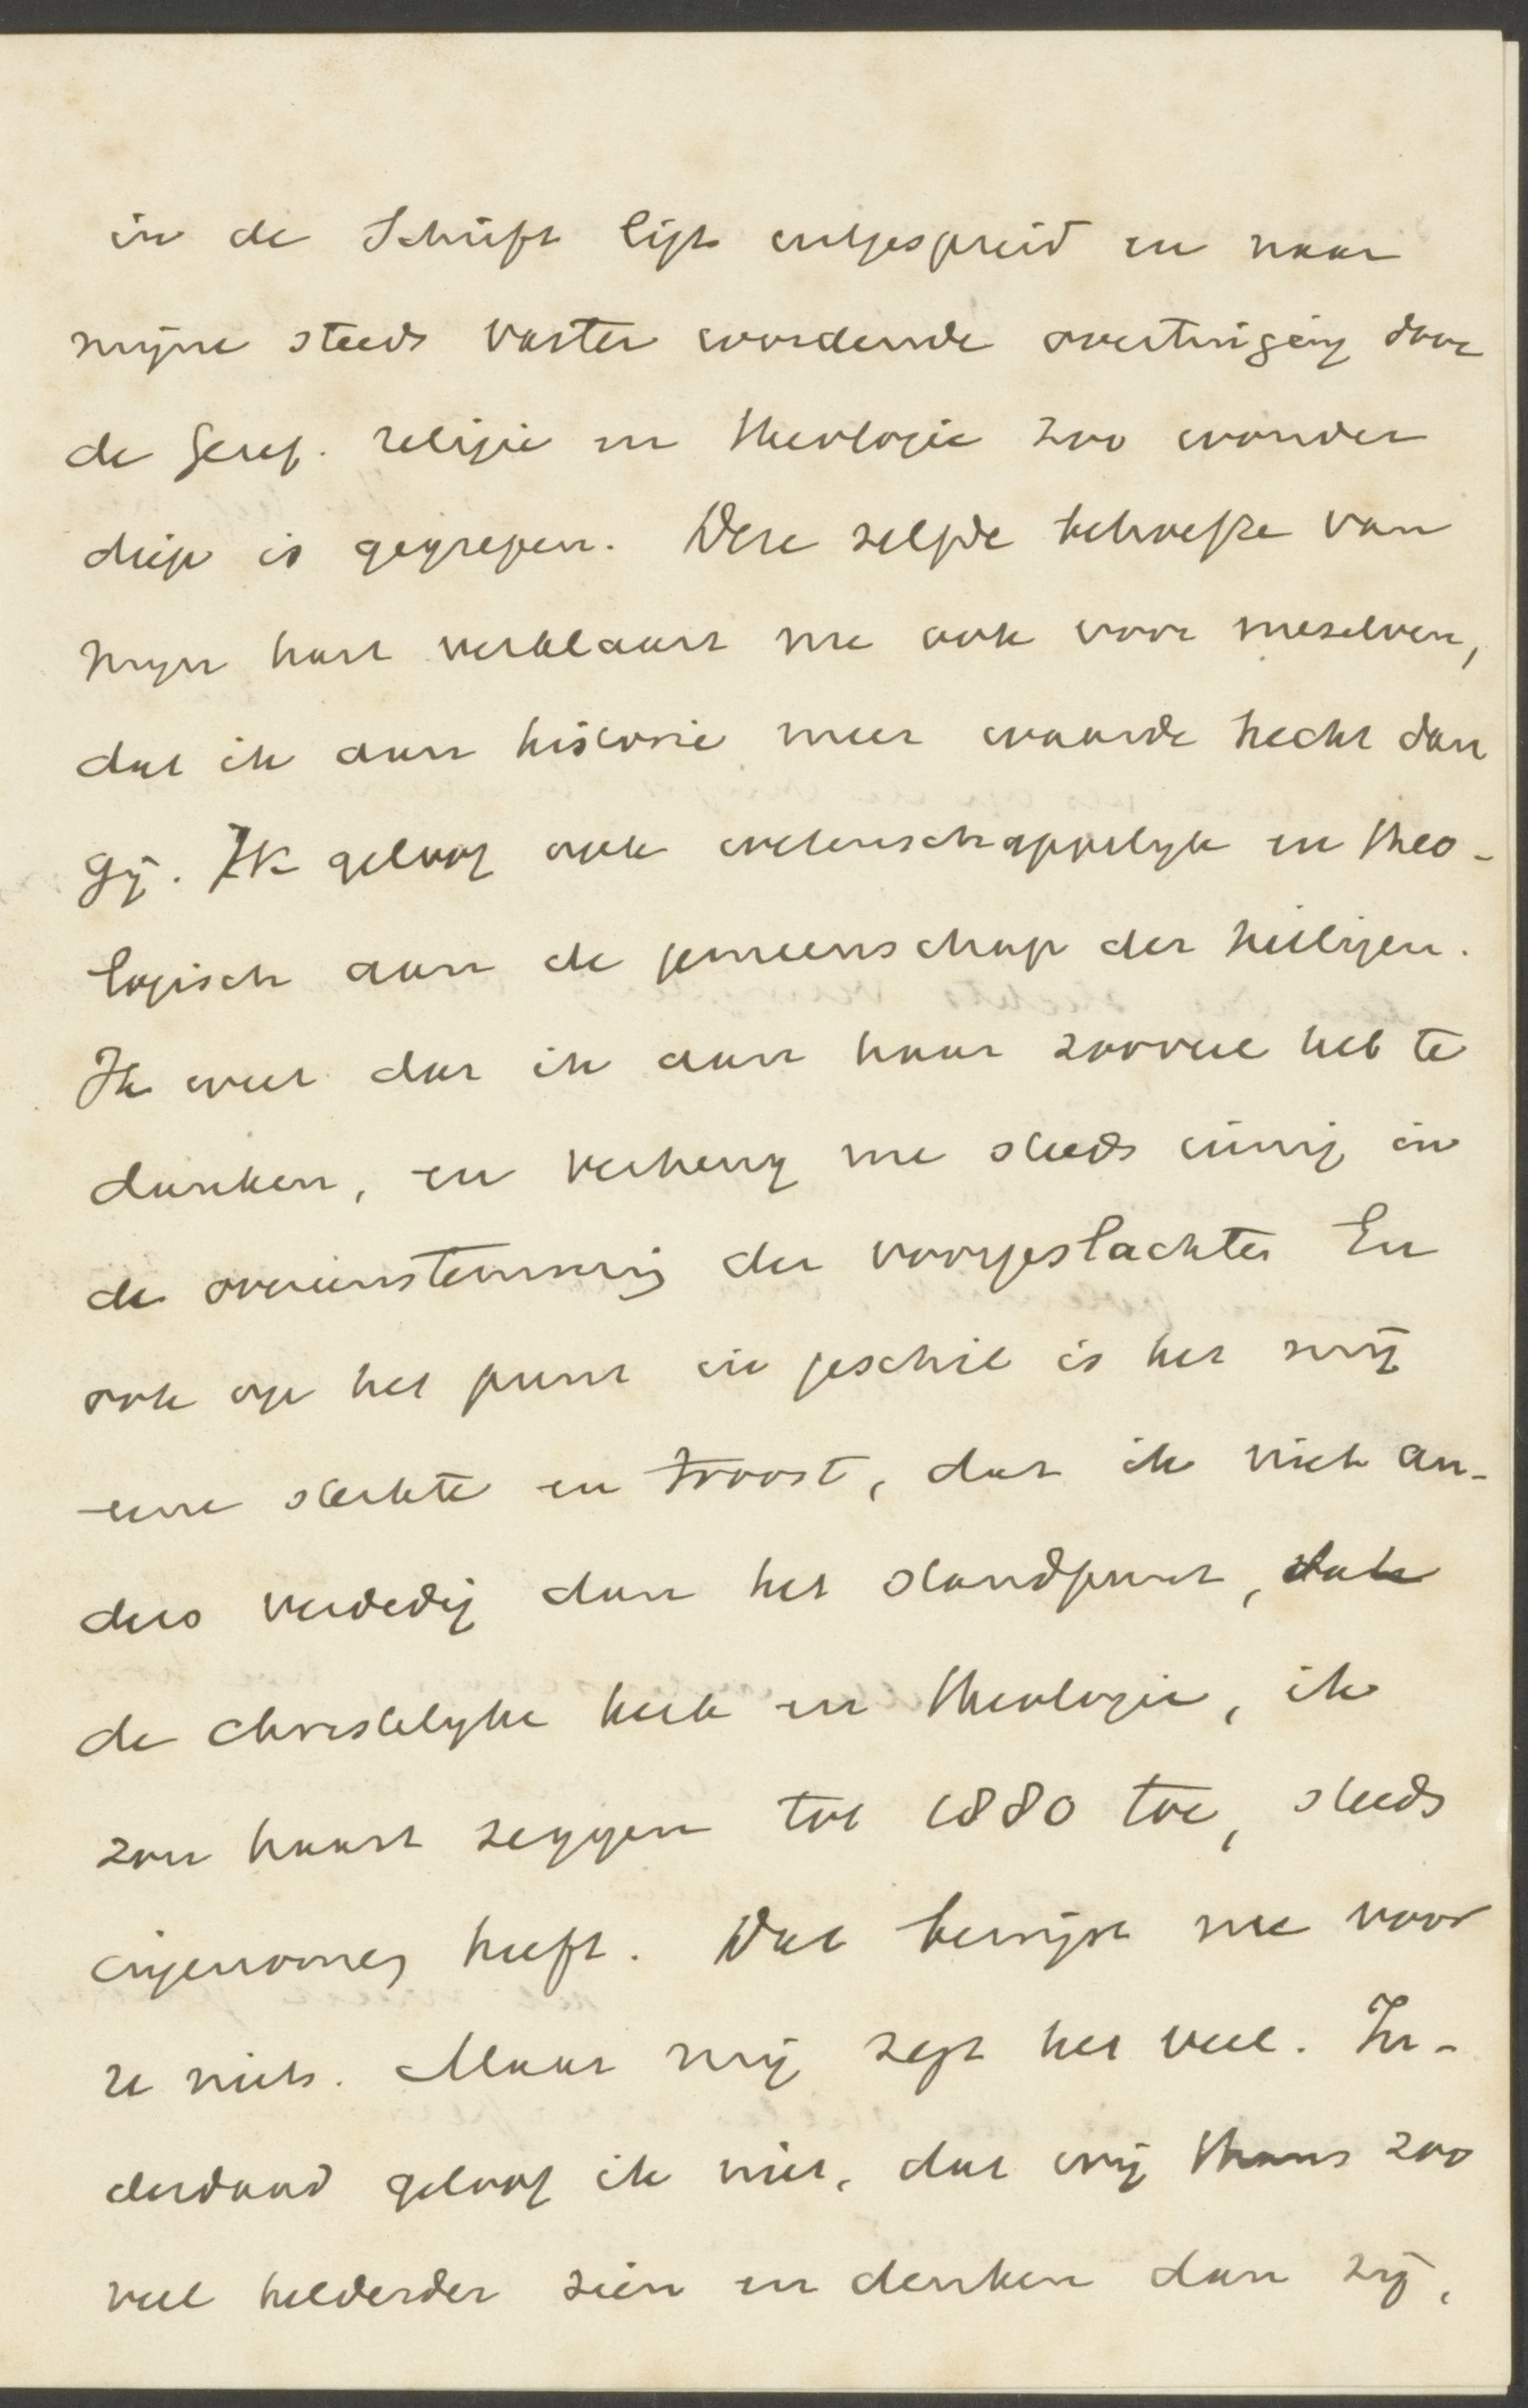 in de Schrift ligt uitgespreid en naar
mijne steeds vaster wordende overtuiging door
de Geref. religie en theologie zoo wonder
diep is gegrepen. Deze zelfde behoefte van
mijn hart verklaart me ook voor mezelven,
dat ik aan historie meer waarde hecht dan
gij. Ik geloof ook wetenschappelijk en theo-
logisch aan de gemeenschap der heiligen.
Ik weet dat ik aan haar zooveel heb te
danken, en verheug me steeds innig in
de overeenstemming der voorgeslachten En
ook op het punt in geschil is het mij
eene sterkte en troost, dat ik niet an-
ders verdedig dan het standpunt, dat
de christelijke kerk en theologie, ik
zou haast zeggen tot 1880 toe, steeds
ingenomen heeft. Dat bewijst me voor
u niets. Maar mij zegt het veel. In-
derdaad geloof ik niet, dat wij thans zoo
veel helderder zien en denken dan zij,